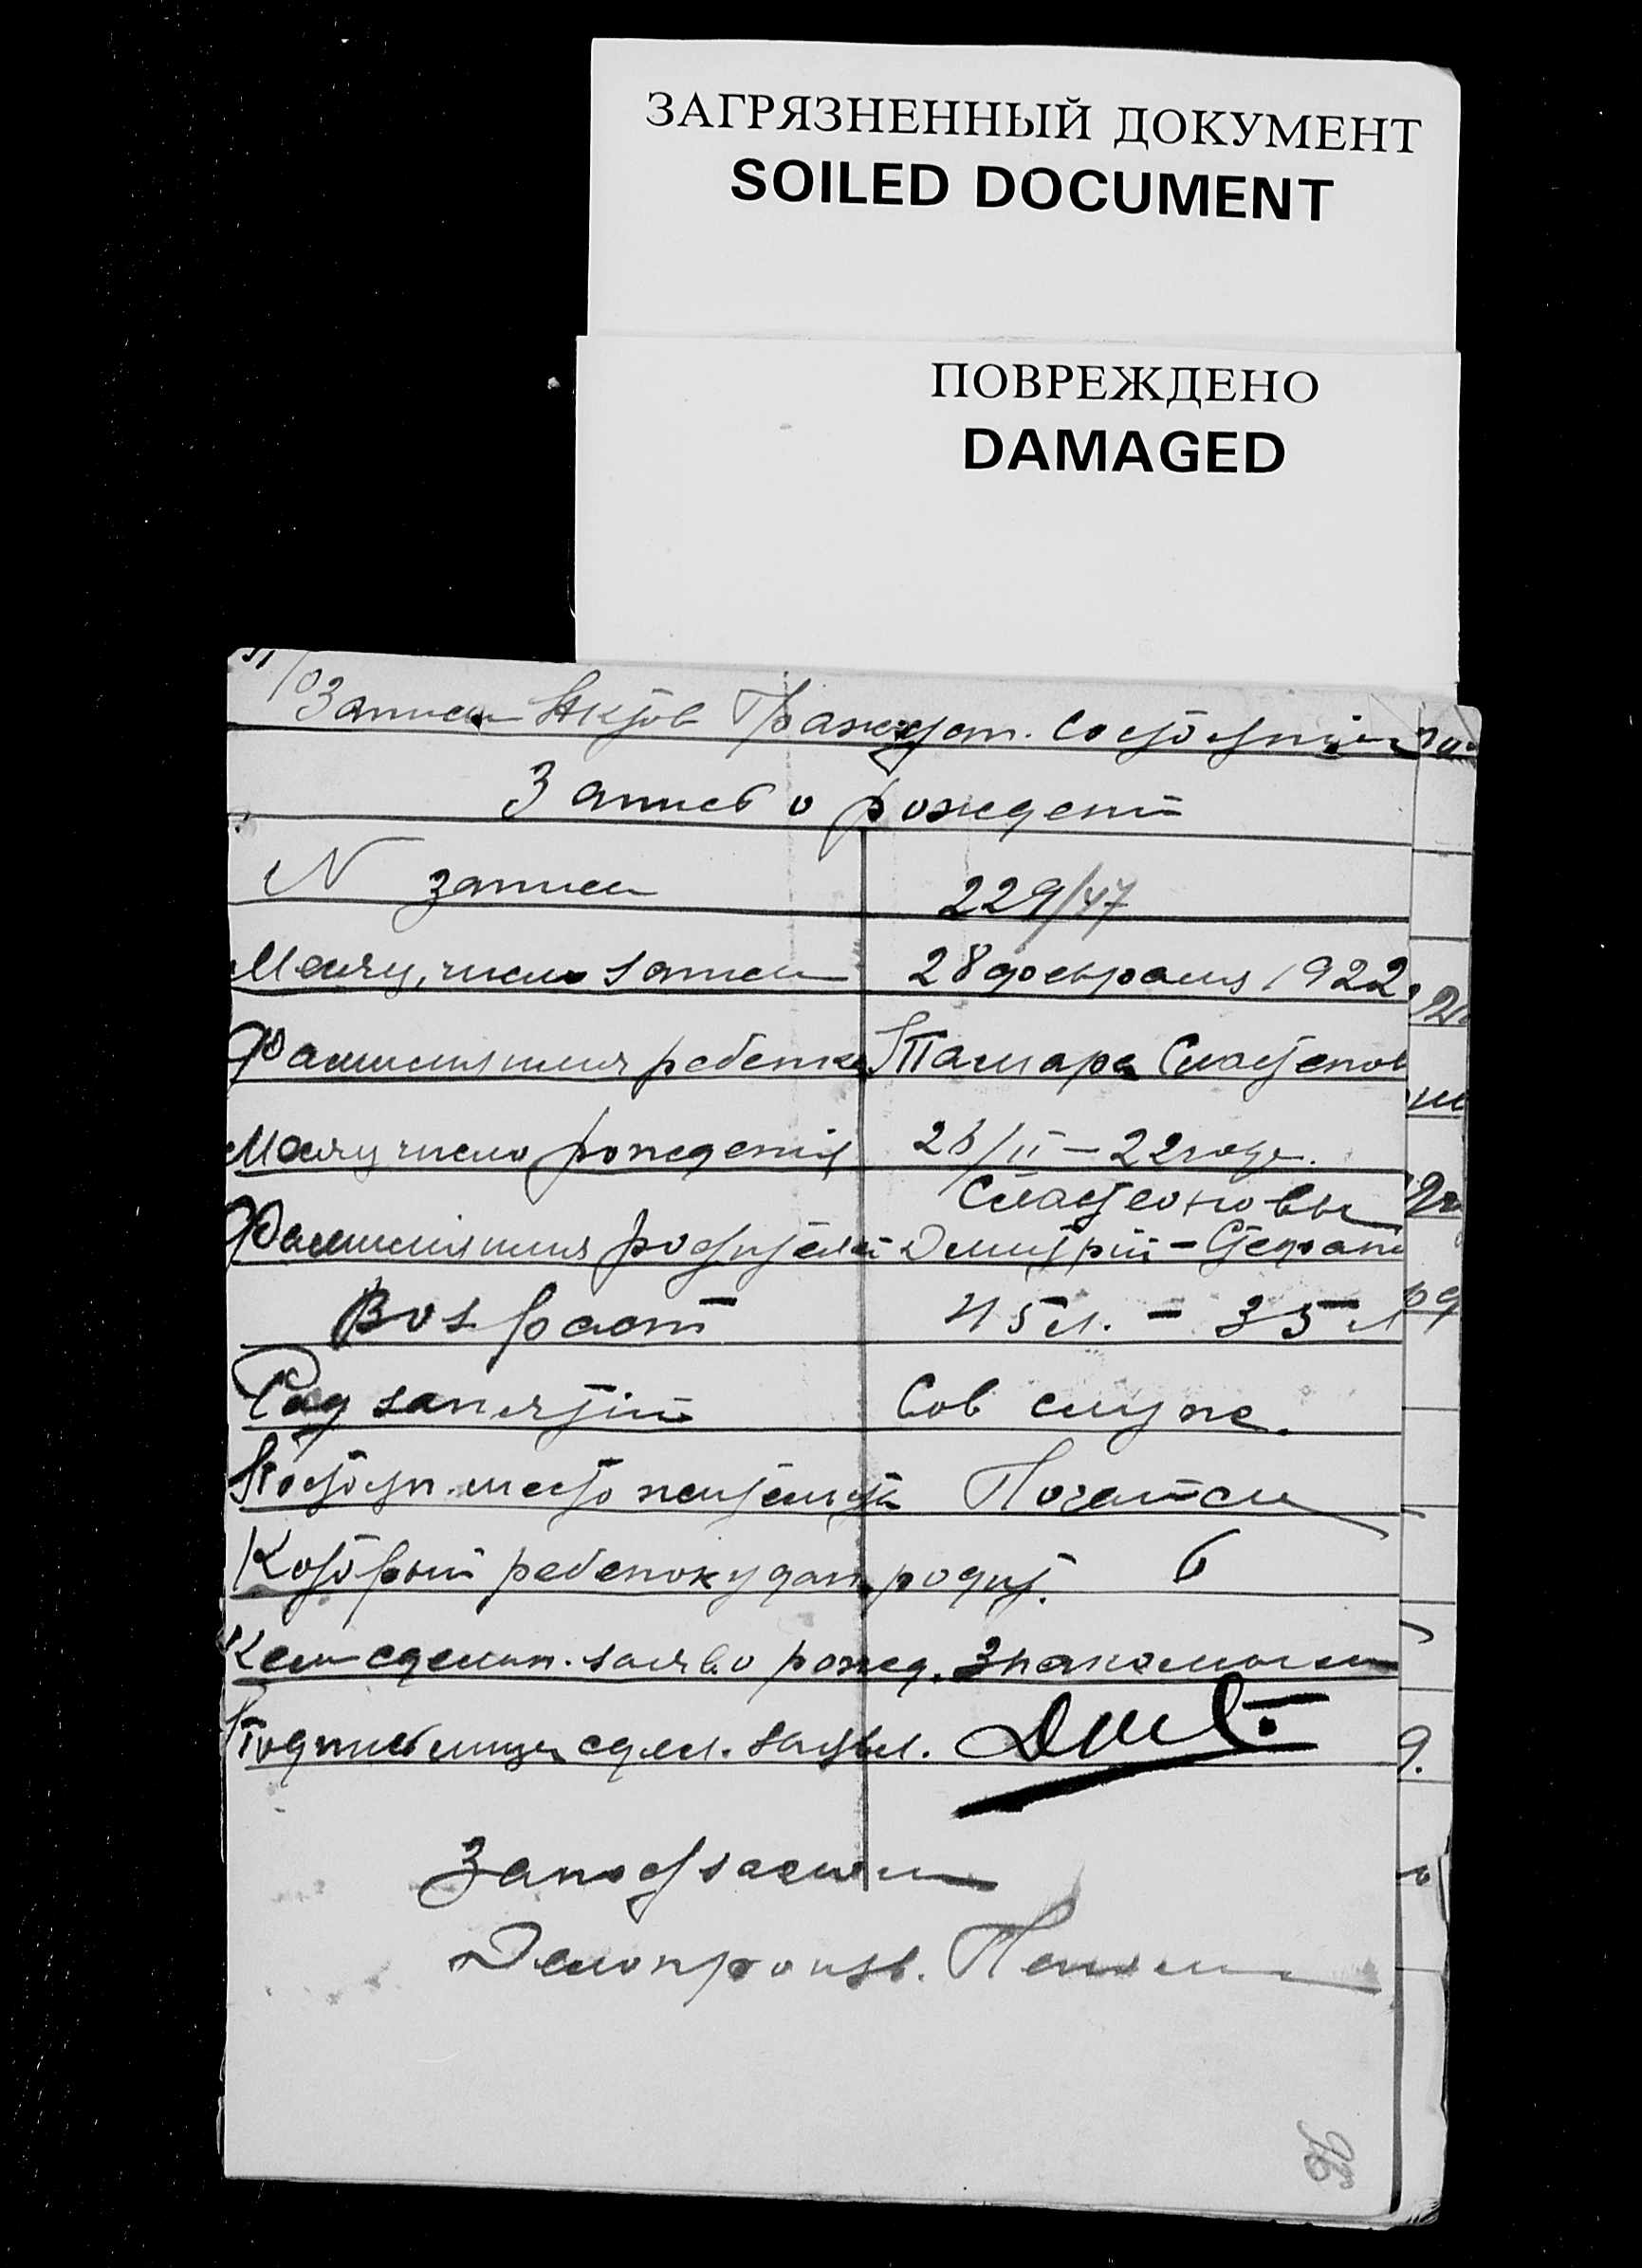 ЗАГРЯЗНЕННЫЙ ДОКУМЕНТ
SOILED DOCUMENT
ПОВРЕЖДЕНО
DAMAGED
Записи Актов Граждан. Состояния
Запись о рождении
N записи 229/47
Месяц, число записи 28 февраля 1922
Фамилия имя ребенка Тамара
Месяц число рождения 26/II – 22 года.
Фамилия имя родителей Дмитрий –
Возраст 45 л. – 35 л
Род занятий Сов служ.
Постоян. место жительства
Который ребенок у дан. родит. 6
Кем сделан. заяв. о рожд. Знакомым
Подпись лица сдел. заявл.
Делопроизв.